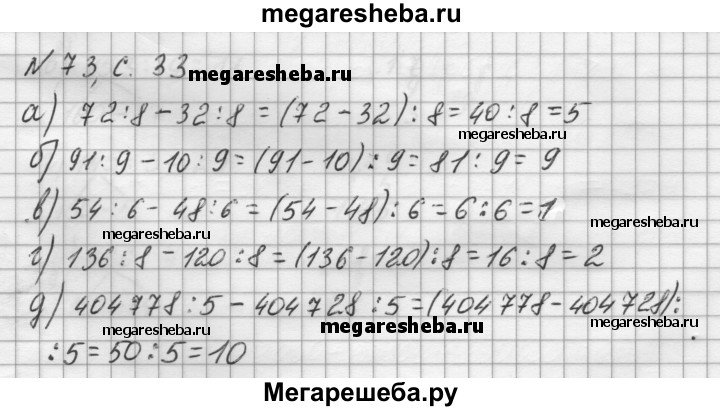 megaresheba.ru
N 73, с. 33
megaresheba.ru
а) 72:8-32:8=(72-32):8=40:8=5
megaresheba.ru
б) 91:9-10:9=(91-10):9=81:9=9
в) 54:6-48:6=(54-48):6=6:6=1
megaresheba.ru
megaresheba.ru
г) 136:8-120:8=(136-120):8=16:8=2
д) 404778:5-404728:5=(404778-404728):
megaresheba.ru
megaresheba.ru
megaresheba.ru
:5=50:5=10
Мегарешеба.ру